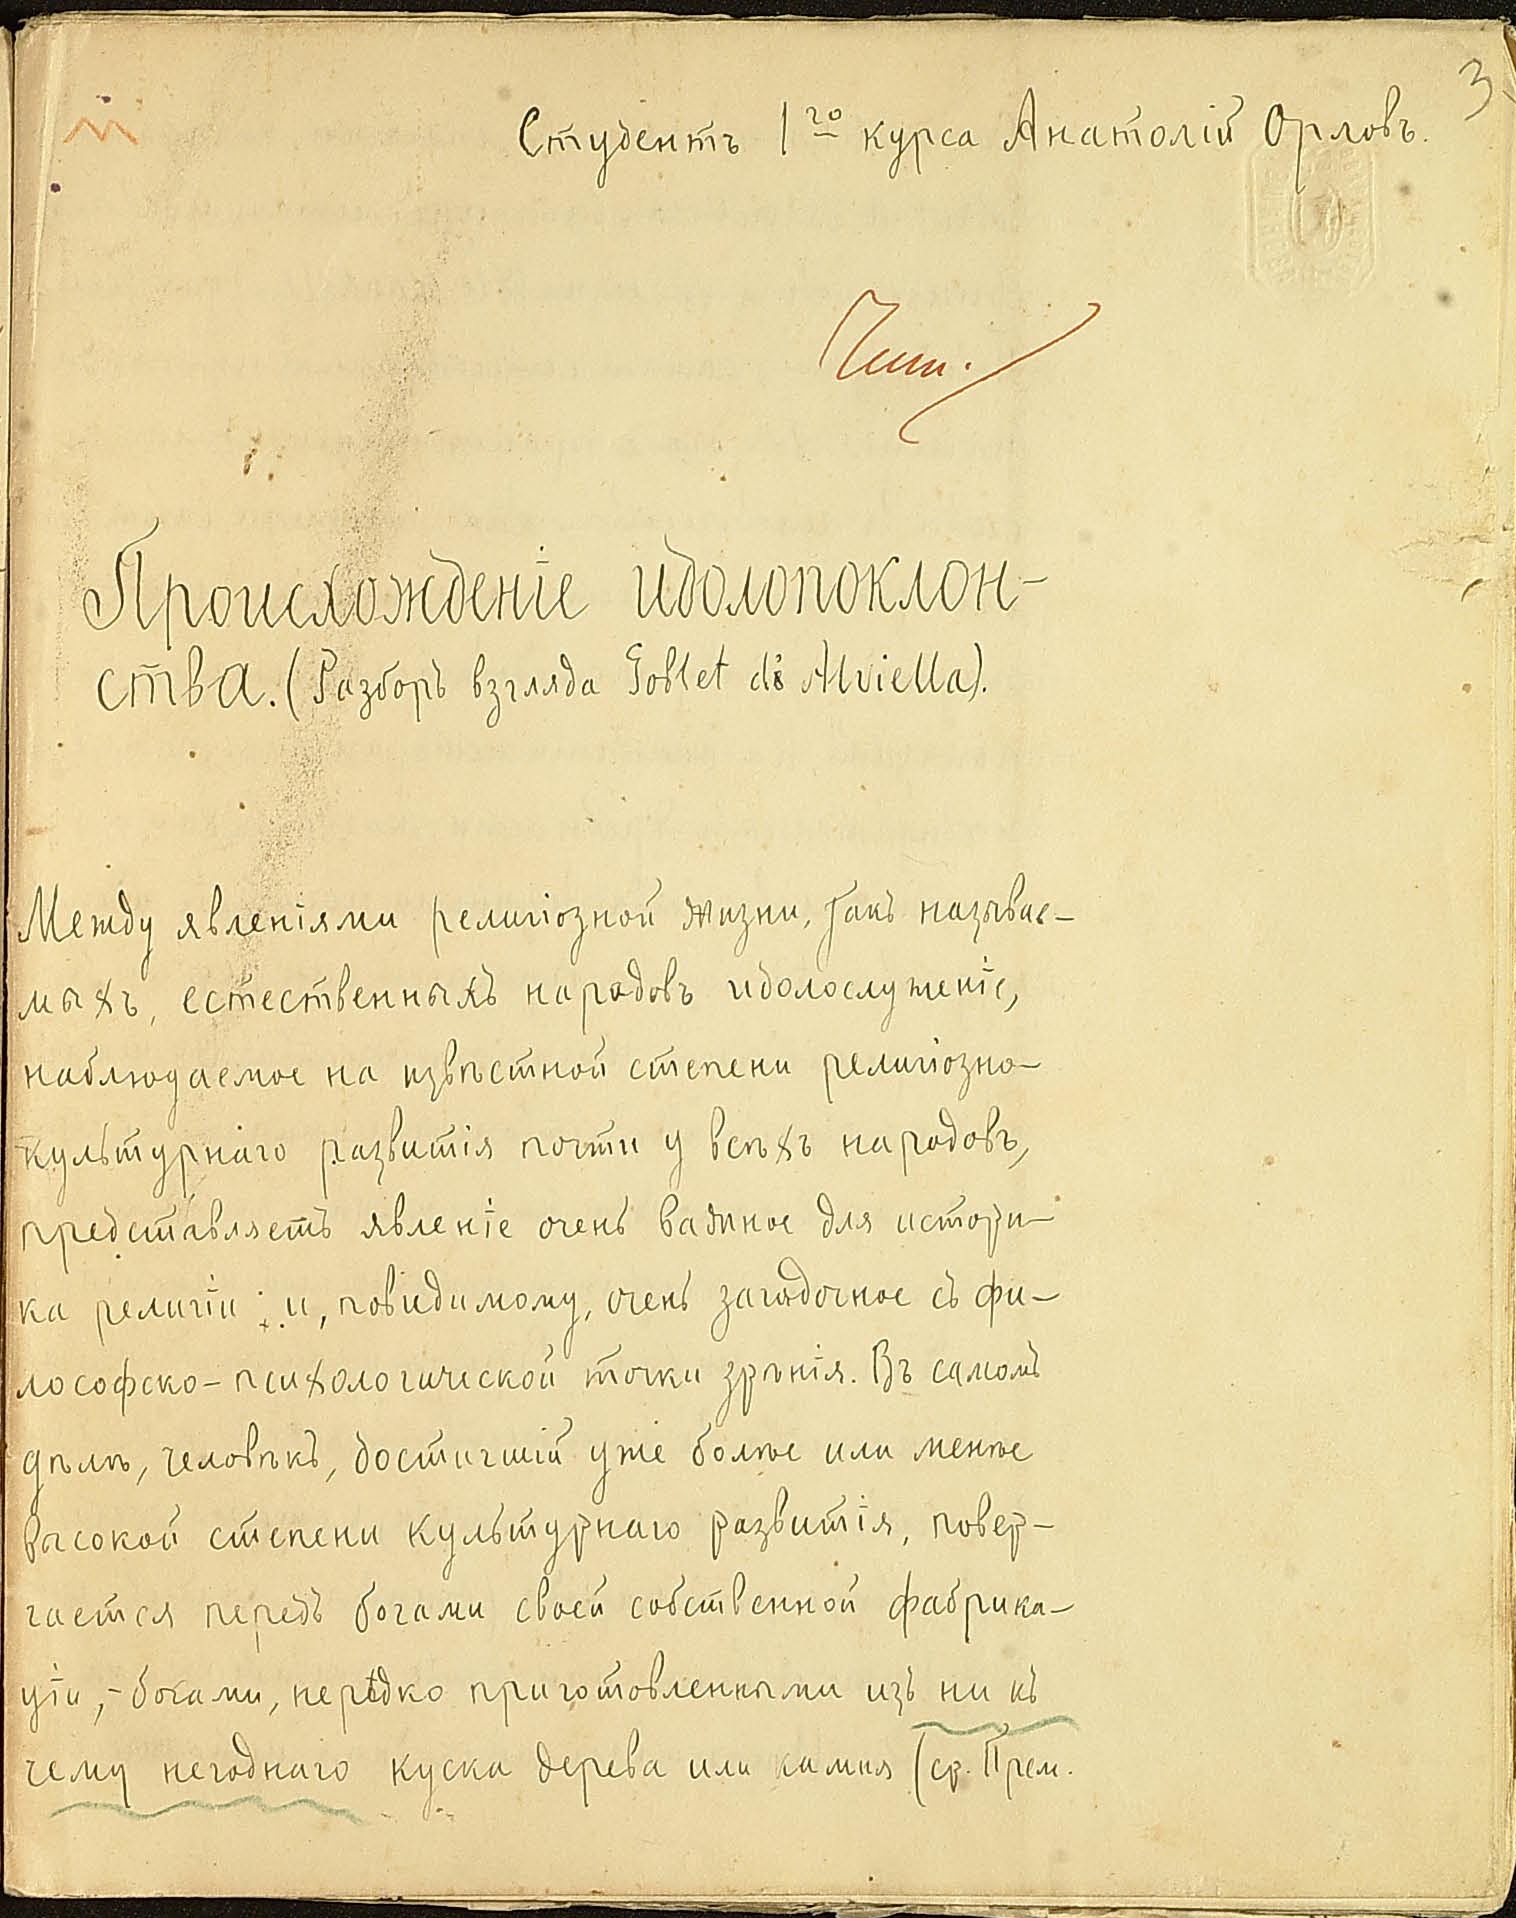 3.
Студентъ 1го курса Анатолій Орловъ.
Чит.
Происхожденіе идолопоклон-
ства. (Разборъ взгляда Goblet d'Alviella).
Между явленіями религіозной жизни, такъ называе-
мыхъ, естественныхъ народовъ идолослуженіе,
наблюдаемое на извѣстной степени религіозно-
культурнаго развитія почти у всѣхъ народовъ,
представляетъ явленіе очень важное для истори-
ка религіи и, повидимому, очень загадочное съ фи-
лософско-психологической точки зрѣнія. Въ самомъ
дѣлѣ, человѣкъ, достигшій уже болѣе или менѣе
высокой степени культурнаго развитія, повер-
гается передъ богами своей собственной фабрика-
ціи,- богами, нерѣдко приготовленными изъ ни къ
чему негоднаго куска дерева или камня (ср. Прем.